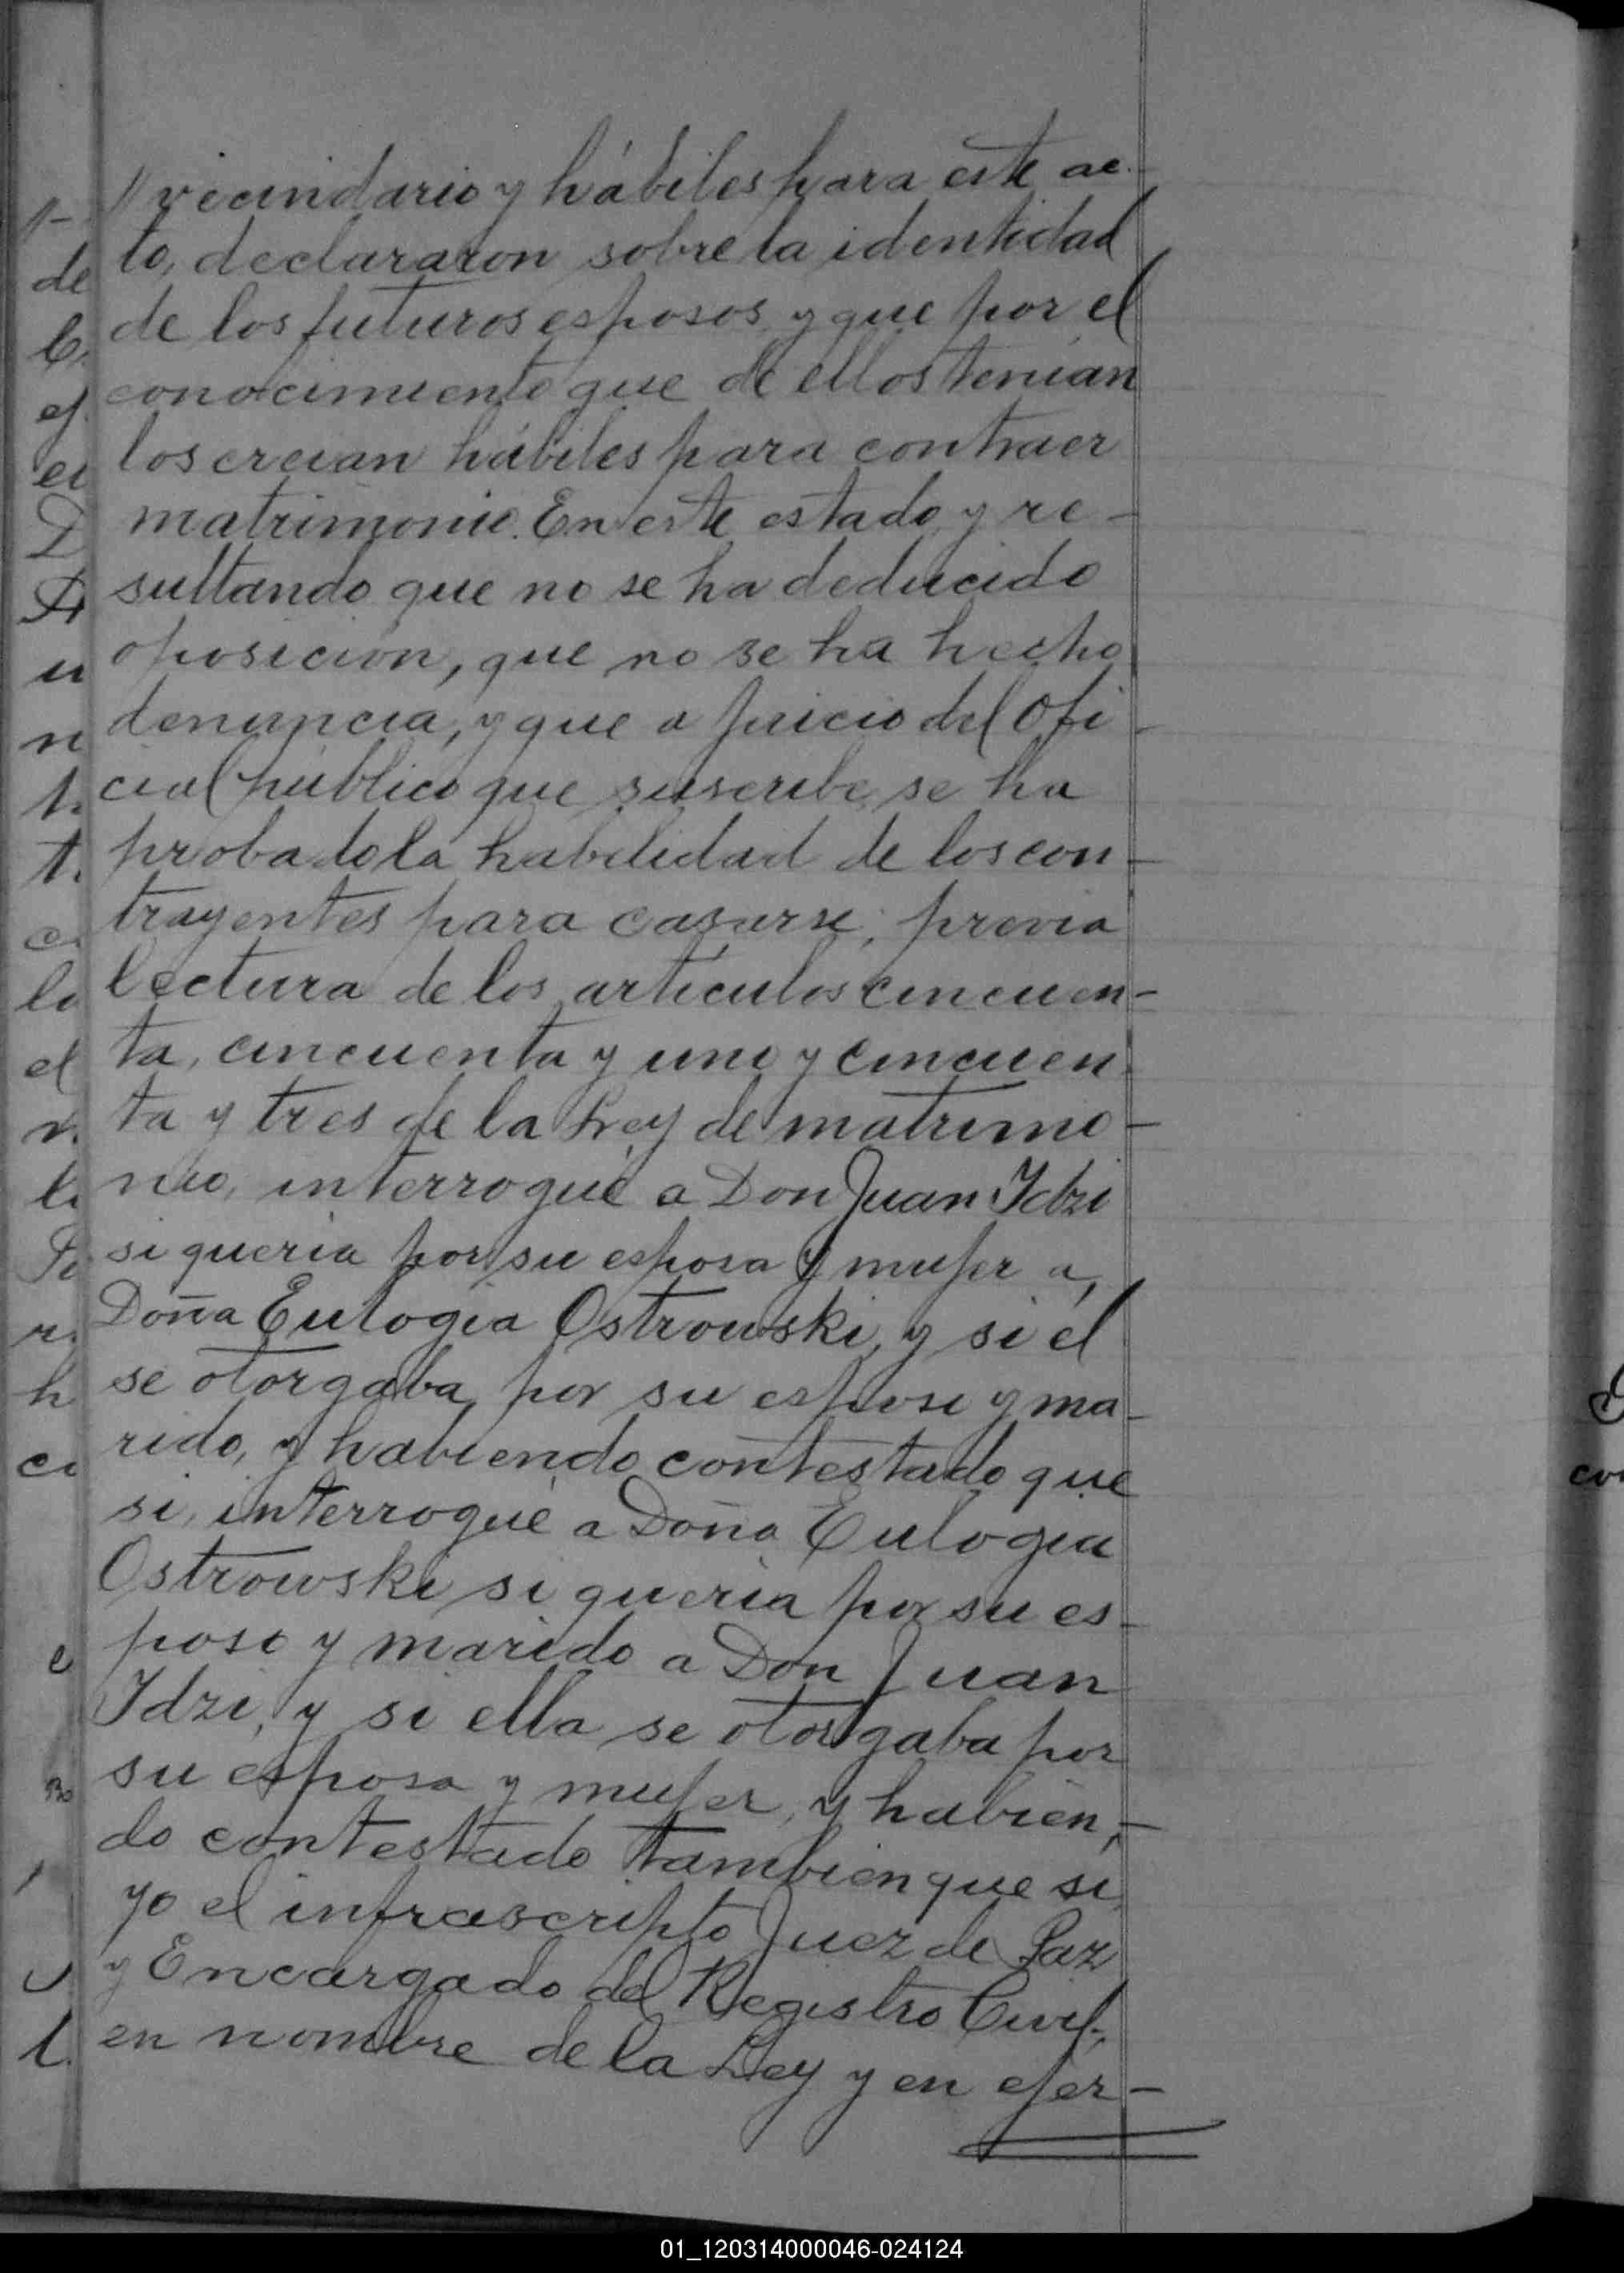 // vecindario y hábiles para este ac-
to, declararon sobre la identidad
de los futuros esposos y que por el
conocimiento que de ellos tenían
los creian hábiles para contraer
matrimonio. En este estado y re-
sultando que no se ha deducido
oposición, que no se ha hecho
denuncia, y que a juicio del Ofi-
cial público que suscribe, se ha
probado la habilidad de los con-
trayentes para casarse; previa
lectura de los artículos cincuen-
ta, cincuenta y uno y cincuen
ta y tres de la Ley de matrimo-
nio, interrogué a Don Juan Idzi
si quería por su esposa y mujer a,
Doña Eulogia Ostrowski, y si él
se otorgaba por su esposo y ma-
rido, y habiendo contestado que
si, interrogué a Doña Eulogia
Ostrowski si quería por su es-
poso y marido a Don Juan
Idzi, y si ella se otorgaba por
su esposa y mujer, y habien,-
do contestado también que si,
yo el infrascripto Juez de Paz
y Encargado del Registro Civil,
en nombre de la Ley y en ejer-
01_120314000046-024124